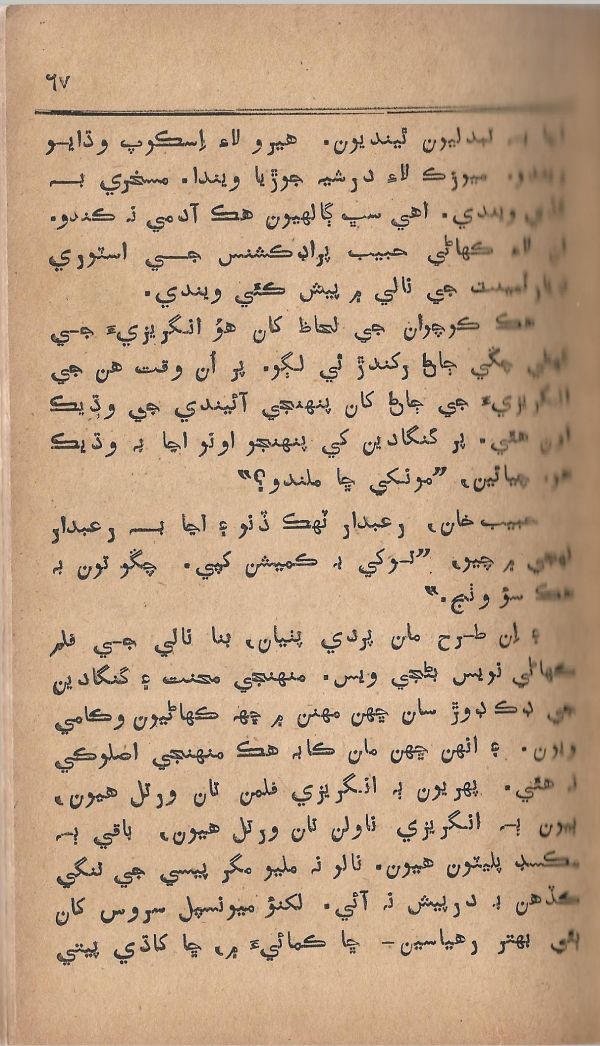 ٦٧
بہ تبديليون ٿينديون. هيرو لاءِ اِسڪوپ وڌايو
ويندو. ميوزڪ لاءِ درشيہ جوڙيا ويندا. مسخري بہ
ويندي. اهي سڀ ڳالهيون هڪ آدمي نہ ڪندو.
لاءِ ڪهاڻي حبيب پراڊڪشنس جي اسٽوري
جي نالي ۾ پيش ڪئي ويندي.
هڪ ڪوچوان جي لحاظ کان هوُ انگريزيءَ جي
چڱي ڄاڻ رکندڙ ٿي لڳو. پر اُن وقت هن جي
انگريزيءَ جي ڄاڻ کان پنهنجي آئيندي جي وڌيڪ
هئي. پر گنگادين کي پنهنجو اونو اڃا بہ وڌيڪ
هو. چيائين، ”مونکي ڇا ملندو؟“
حبيب خان، رعبدار ٽهڪ ڏنو ۽ اڃا بہ رعبدار
لهجي ۾ چيو، ”توکي بہ ڪميشن کپي. چڱو تون بہ
هڪ سؤ وٺج.“
۽ اِن طرح مان پردي پٺيان، بنا نالي جي فلم
ڪهاڻي نويس بڻجي ويس. منهنجي محنت ۽ گنگادين
جي ڊڪ ڊوڙ سان ڇهن مهنن ۾ ڇهہ ڪهاڻيون وڪامي
ويون. ۽ انهن ڇهن مان ڪابہ هڪ منهنجي اصلوڪي
نہ هئي. پهريون ٻہ انگريزي فلمن تان ورتل هيون،
ٻيون ٻہ انگريزي ناولن تان ورتل هيون، باقي ٻہ
مڪسڊ پليٽون هيون. نالو نہ مليو مگر پيسي جي تنگي
ڪڏهن بہ درپيش نہ آئي. لکنؤ ميونسپل سروس کان
بهتر رهياسين– ڇا ڪمائيءَ ۾، ڇا کاڌي پيتي